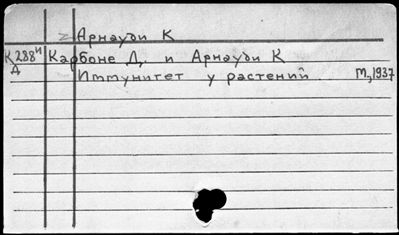 2 Арнауди К
К288и Карбоне Д, и Арнауди К
Д Иммунитет у растений М,1937